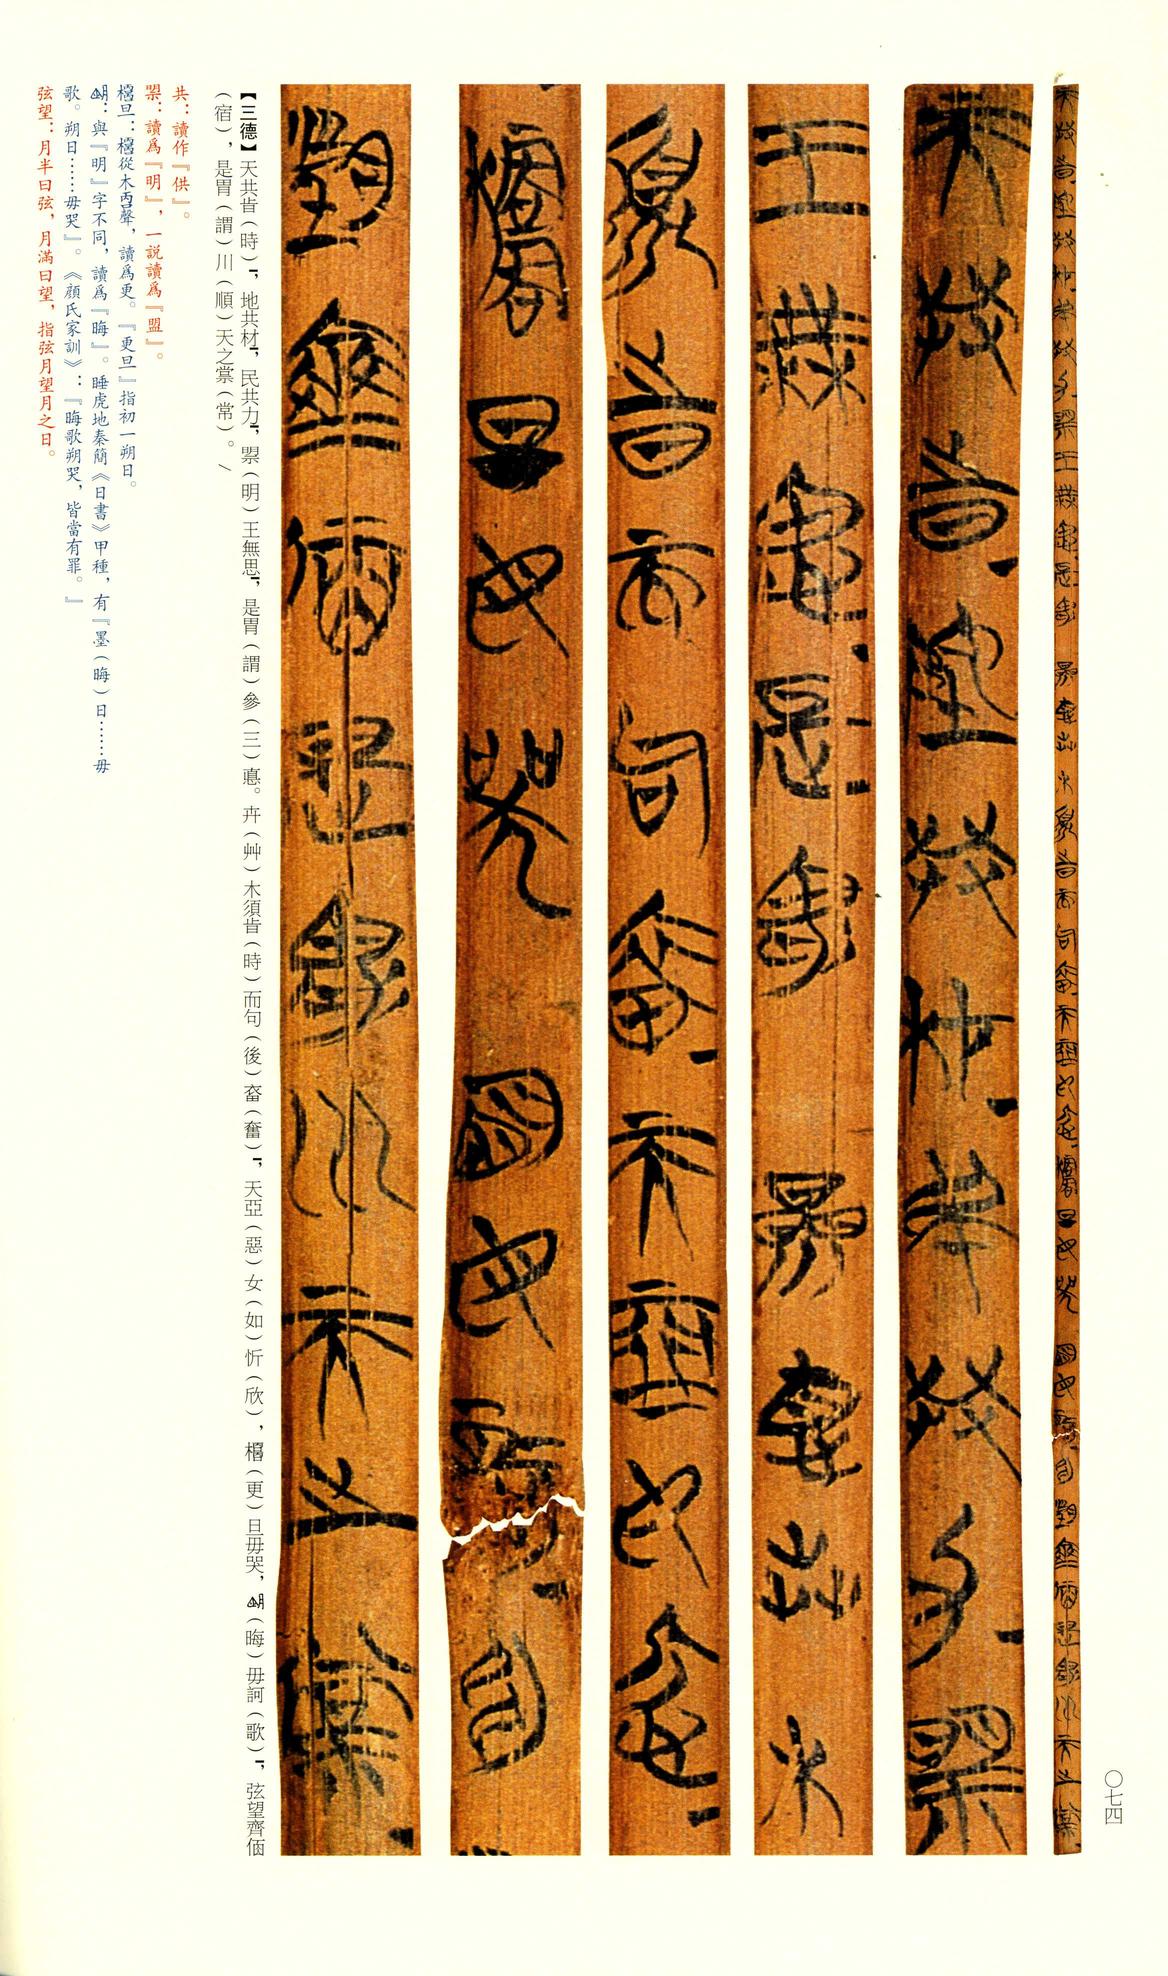 〇七四
【三德】天共旹（時），地共材，民共力，㮓（明）王無思，是胃（謂）參（三）悳。卉（艸）木須旹（時）而句（後）奮（奮），天亞（惡）女（如）忻（欣），（更）旦毋哭，（晦）毋訶（歌），弦望齊㑋
（宿），是胃（謂）川（順）天之棠（常）。/
共：讀作『供』。
讀爲『明』，一説讀爲『盟』。
旦：從木丙聲，讀爲更。『更旦』指初一朔日。
與『明』字不同，讀爲『晦』。睡虎地秦簡《日書》甲種，有『墨（晦）日……毋
歌。朔日……毋哭』。《顔氏家訓》：『晦歌朔哭，皆當有罪。』
弦望：月半曰弦，月滿曰望，指弦月望月之日。